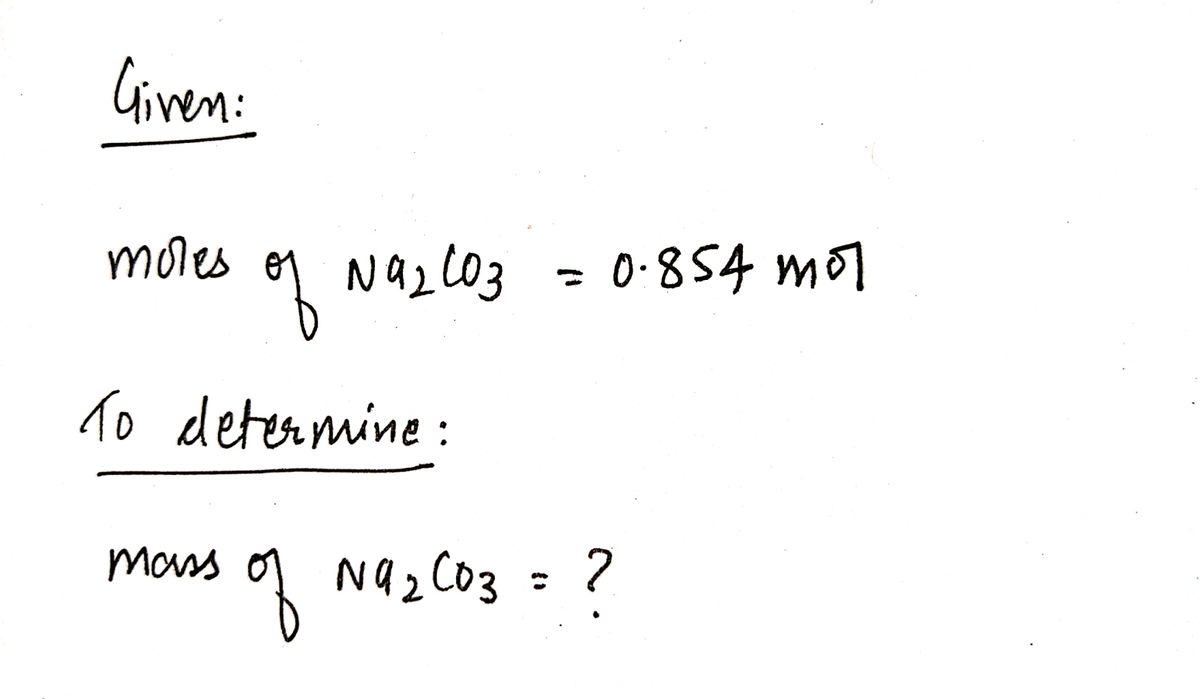 Given:
moles of Na2CO3 = 0.854 mol
To determine:
mass of Na2CO3 = ?